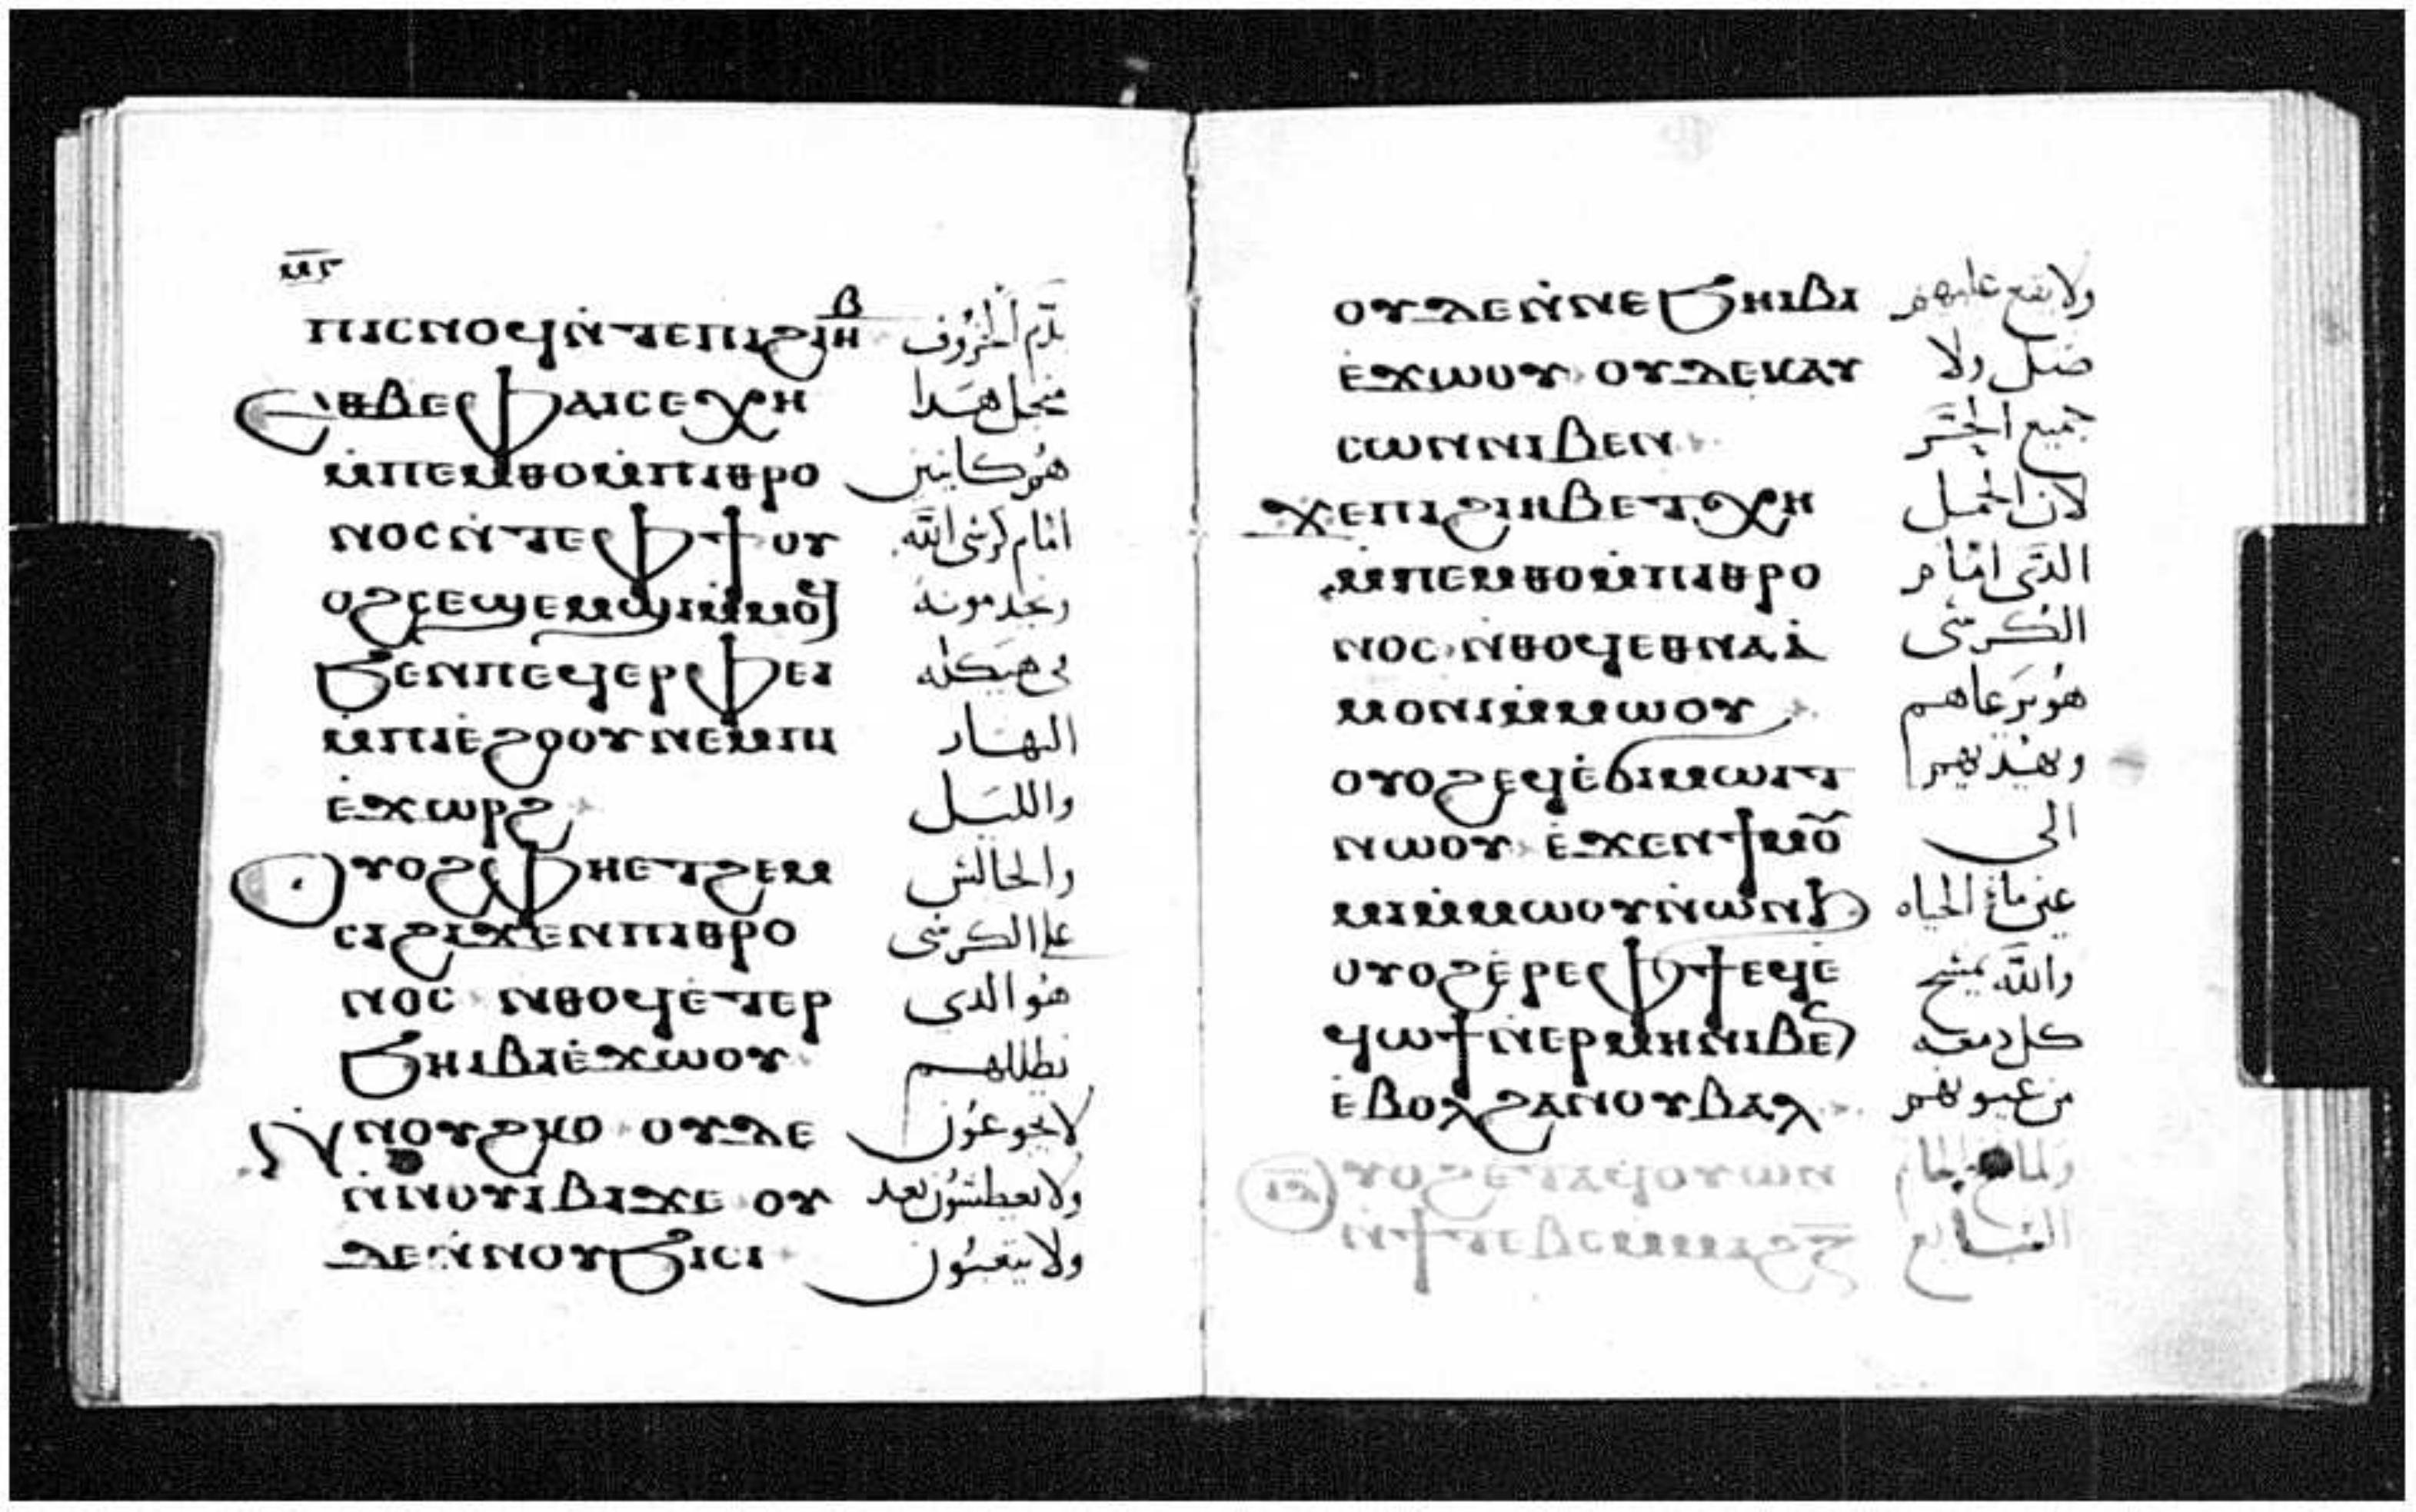 ⲙⲅ
ⲡⲓⲥⲛⲟϥⲛ̀ⲧⲉⲡⲓϩⲓⲏⲃ بدم الخروف
Ⲉⲑⲃⲉⲫⲁⲓⲥⲉⲭⲏ منجل هدا
ⲙ̀ⲡⲉⲙⲑⲟⲙ̀ⲡⲓⲑⲣⲟ هو كاينين
ⲛⲟⲥⲛ̀ⲧⲉⲫϯⲟⲩ امام كرسى الله
ⲟϩⲥⲉϣⲉⲙϣⲓⲙ̀ⲙⲟϥ ونخدمونه
ϧⲉⲛⲡⲉϥⲉⲣⲫⲉⲓ فى هيكله
ⲙ̀ⲡⲓⲉ̀ϩⲟⲟⲩⲛⲉⲙⲡⲓ النهار
ⲉ̀ϫⲱⲣϩ والليل
Ⲟⲩⲟϩⲫⲏⲉⲧϩⲉⲙ والجالس
ⲥⲓϩⲓϫⲉⲛⲡⲓⲑⲣⲟ علا الكرسى
ⲛⲟⲥ ⲛⲑⲟϥⲉ̀ⲧⲉⲣ هو الدى
ϧⲏⲓⲃⲓⲉ̀ϫⲱⲟⲩ يظللهم
Ⲛ̀ⲛⲟⲩϩⲕⲟ ⲟⲩⲇⲉ لا يجوعون
ⲛ̀ⲛⲟⲩⲓⲃⲓϫⲉ ⲟⲩ ولا يعطشون بعد
ⲇⲉⲛ̀ⲛⲟⲩϧⲓⲥⲓ ولا يتعبون
ⲟⲩⲇⲉⲛ̀ⲛⲉϧⲏⲓⲃⲓ ولا يقع عليهم
ⲉ̀ϫⲱⲟⲩ ⲟⲩⲇⲉⲕⲁⲩ ضل ولا
ⲥⲱⲛⲛⲓⲃⲉⲛ جميع الحر
ϫⲉⲡⲓϩⲓⲏⲃⲉⲧⲭⲏ لان الحمل
ⲙ̀ⲡⲉⲙⲑⲟⲙ̀ⲡⲓⲑⲣⲟ الدى امام
ⲛⲟⲥ ⲛ̀ⲑⲟϥⲉⲑⲛⲁⲁ̀ الكرسى
ⲙⲟⲛⲓⲙ̀ⲙⲱⲟⲩ هو يرعاهم
ⲟⲩⲟϩⲉϥⲉ̀ϭⲓⲙⲱⲓⲧ ويهديهم
ⲛⲱⲟⲩ ⲉ̀ϫⲉⲛϯⲙⲟ الى
ⲙⲓⲙ̀ⲙⲱⲟⲩⲛ̀ⲱⲛϧ عين ماء الحياه
ⲟⲩⲟϩⲉ̀ⲣⲉⲫϯⲉϥⲉ̀ والله يمسح
ϥⲱϯⲛ̀ⲉⲣⲙⲏⲛⲓⲃⲉ كل دمعه
ⲉ̀ⲃⲟⲗϩⲁⲛⲟⲩⲃⲁⲗ من عيونهم
Ⲟⲩⲟϩⲉⲧⲁϥⲟⲩⲱⲛ
ⲛ̀ϯⲧⲉⲃⲥ السابع